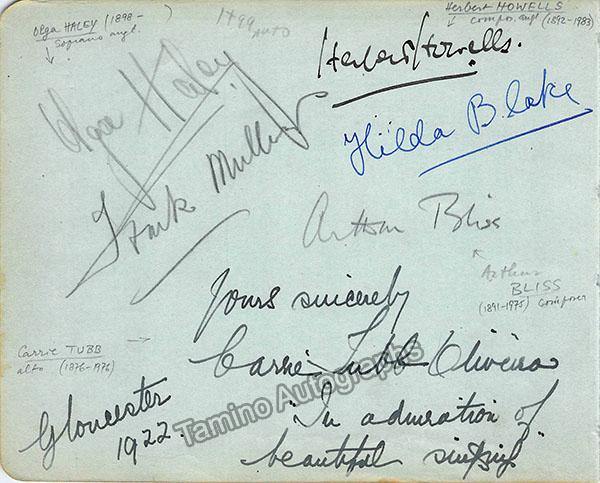 Olga HALEY (1898-
Soprano angl.
1499
AUTO
Herbert HOWELLS
compos. angl (1892-1983)
Olga Haley
Herbert Howells.
Hilda Blake
Frank Mullings
Arthur Bliss
Arthur
BLISS
(1891-1975) Composer
Yours sincerely
Carrie TUBB
alto (1876-1976)
Carrie Tubb Oliveira
Tamino Autographs
Gloucester
1922.
"In admiration of
beautiful singing"